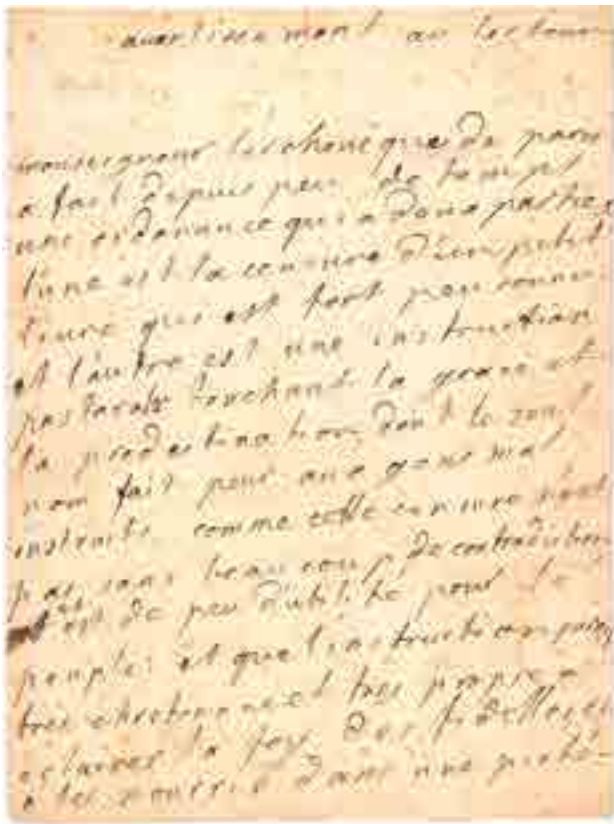 avertissement au lecteur
monseigneur l'archeveque de paris
a fait depuis peu de temps
une ordonance qui a deux parties
l'une est la censure d'un petit
livre qui est fort peu connu
et l'autre est une instruction
pastorale touchant la grace et
la predestination, dont le seul
nom fait peur aux gens mal
instruits comme cette censure n'est
pas sans beaucoup de contradiction
et est de peu d'utilité pour le
peuple et que l'instruction
tres chretienne et tres propre a
eclairer la foy des fidelles et
a les nourrir dans une pieté